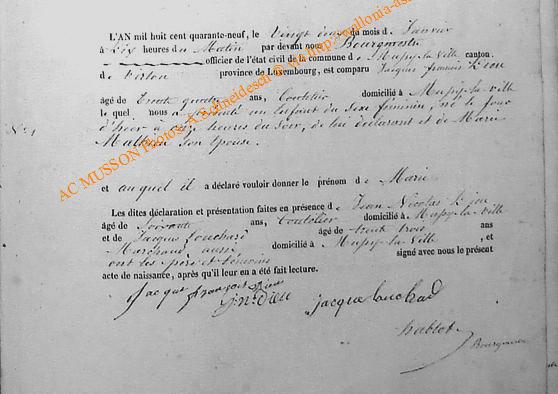 L'AN mil huit cent quarante-neuf, le Vingt du mois de Janvier
à dix heures du Matin par devant nous Bourgmestre
officier de l'état civil de la commune de Mussy-la-Ville canton
de Virton province de Luxembourg, est comparu Jacques François
âgé de Trente quatre ans, Coutelier domicilié à Mussy-la-ville
le quel nous a présenté un enfant du sexe féminin, né le jour
d'hier à onze heures du soir, de lui déclarant et de Marie
N° 1
son épouse.
et auquel il a déclaré vouloir donner le prénom de Marie
Les dites déclaration et présentation faites en présence de Jean Nicolas
âgé de soixante ans, Coutelier domicilié à Mussy-la-Ville
et de Jacques Louchard âgé de trente trois ans
Marchand aussi domicilié à Mussy-la-Ville, et
ont les père et témoins signé avec nous le présent
acte de naissance, après qu'il leur en a été fait lecture.
Jacque françois
J. N. Dieu
Jacque Louchard
hablot
Bourgmestre
AC MUSSON Photos: A Schneidesch © via http://wallonia-asbl